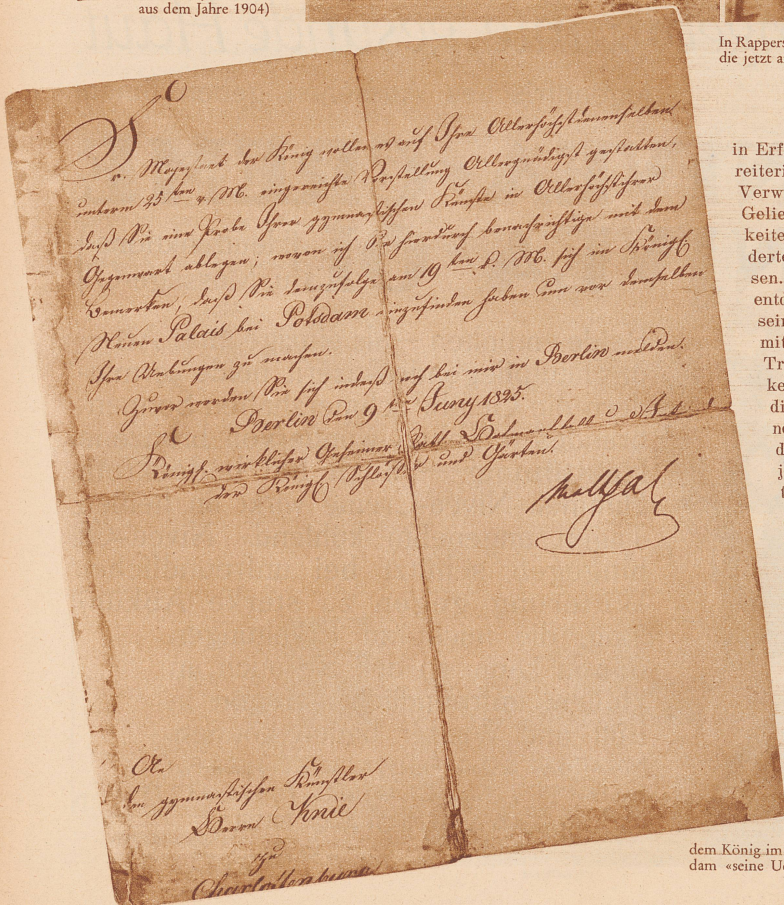 aus dem Jahre 1904)
In Rappers
die jetzt a
Se. Majestaet der König wollen es auf Ihre Allerhöchstdenenselben
unterm 25ten v. M. eingereichte Vorstellung Allergnädigst gestatten,
daß Sie eine Probe Ihrer gymnastischen Künste in Allerhöchstihrer
Gegenwart ablegen; wovon ich Sie hierdurch benachrichtige mit dem
Bemerken, daß Sie demzufolge am 19ten d. M. sich im Königl
Neuen Palais bei Potsdam einzufinden haben um vor demselben
Ihre Uebungen zu machen.
Zuvor werden Sie sich indeß noch bei mir in Berlin melden.
Berlin den 9ten Juny 1825.
Königl. wirklicher Geheimer Rath
der Königl Schlösser und Gärten.
An
den gymnastischen Künstler
Herrn Knie
zu
Charlottenburg
in Erf
reiteri
Verw
Gelie
keite
derte
sen.
ento
sein
mit
Tr
ke
di
ne
d
j
dem König im
dam «seine Ue